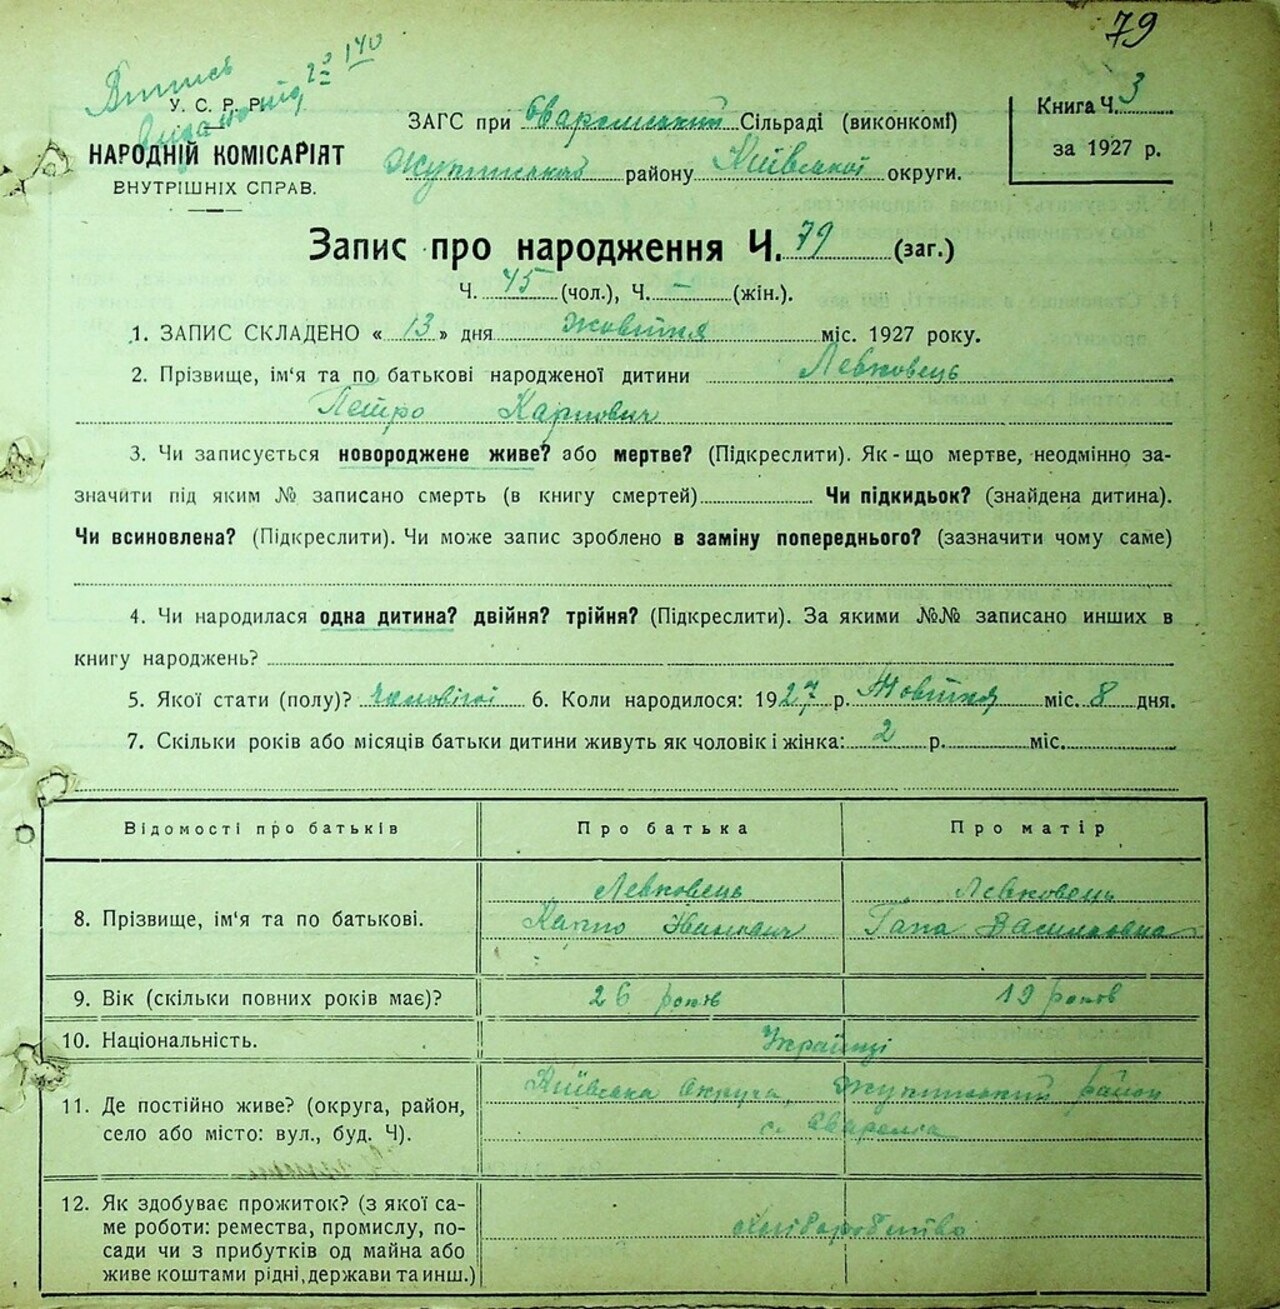 79
Випись
видано
У. С. Р. Р.
НАРОДНІЙ КОМІСАРІЯТ
ВНУТРІШНІХ СПРАВ.
ЗАГС при Сваромський Сільраді (виконкомі)
району Київської округи.
Книга Ч. 3
за 1927 р.
Запис про народження Ч. 79 (заг.)
Ч. 45 (чол.), Ч. – (жін.).
1. ЗАПИС СКЛАДЕНО « 13 » дня жовтня міс. 1927 року.
2. Прізвище, ім'я та по батькові народженої дитини Левковець
Петро Карпович
3. Чи записується новороджене живе? або мертве? (Підкреслити). Як-що мертве, неодмінно за-
значити під яким № записано смерть (в книгу смертей) Чи підкидьок? (знайдена дитина).
Чи всиновлена? (Підкреслити). Чи може запис зроблено в заміну попереднього? (зазначити чому саме)
4. Чи народилася одна дитина? двійня? трійня? (Підкреслити). За якими №№ записано инших в
книгу народжень?
5. Якої стати (полу)? чоловічої 6. Коли народилося: 1927 р. Жовтня міс. 8 дня.
7. Скільки років або місяців батьки дитини живуть як чоловік і жінка: 2 р. міс.
Відомості про батьків Про батька Про матір
Левковець Левковець
8. Прізвище, ім'я та по батькові. Карпо Іванович Гапа Василовна
9. Вік (скільки повних років має)? 26 років 19 років
10. Національність. Українці
11. Де постійно живе? (округа, район, Київська округа, район
село або місто: вул., буд. Ч). с. Сваромя
12. Як здобуває прожиток? (з якої са-
ме роботи: ремества, промислу, по- хліборобство
сади чи з прибутків од майна або
живе коштами рідні, держави та инш.)